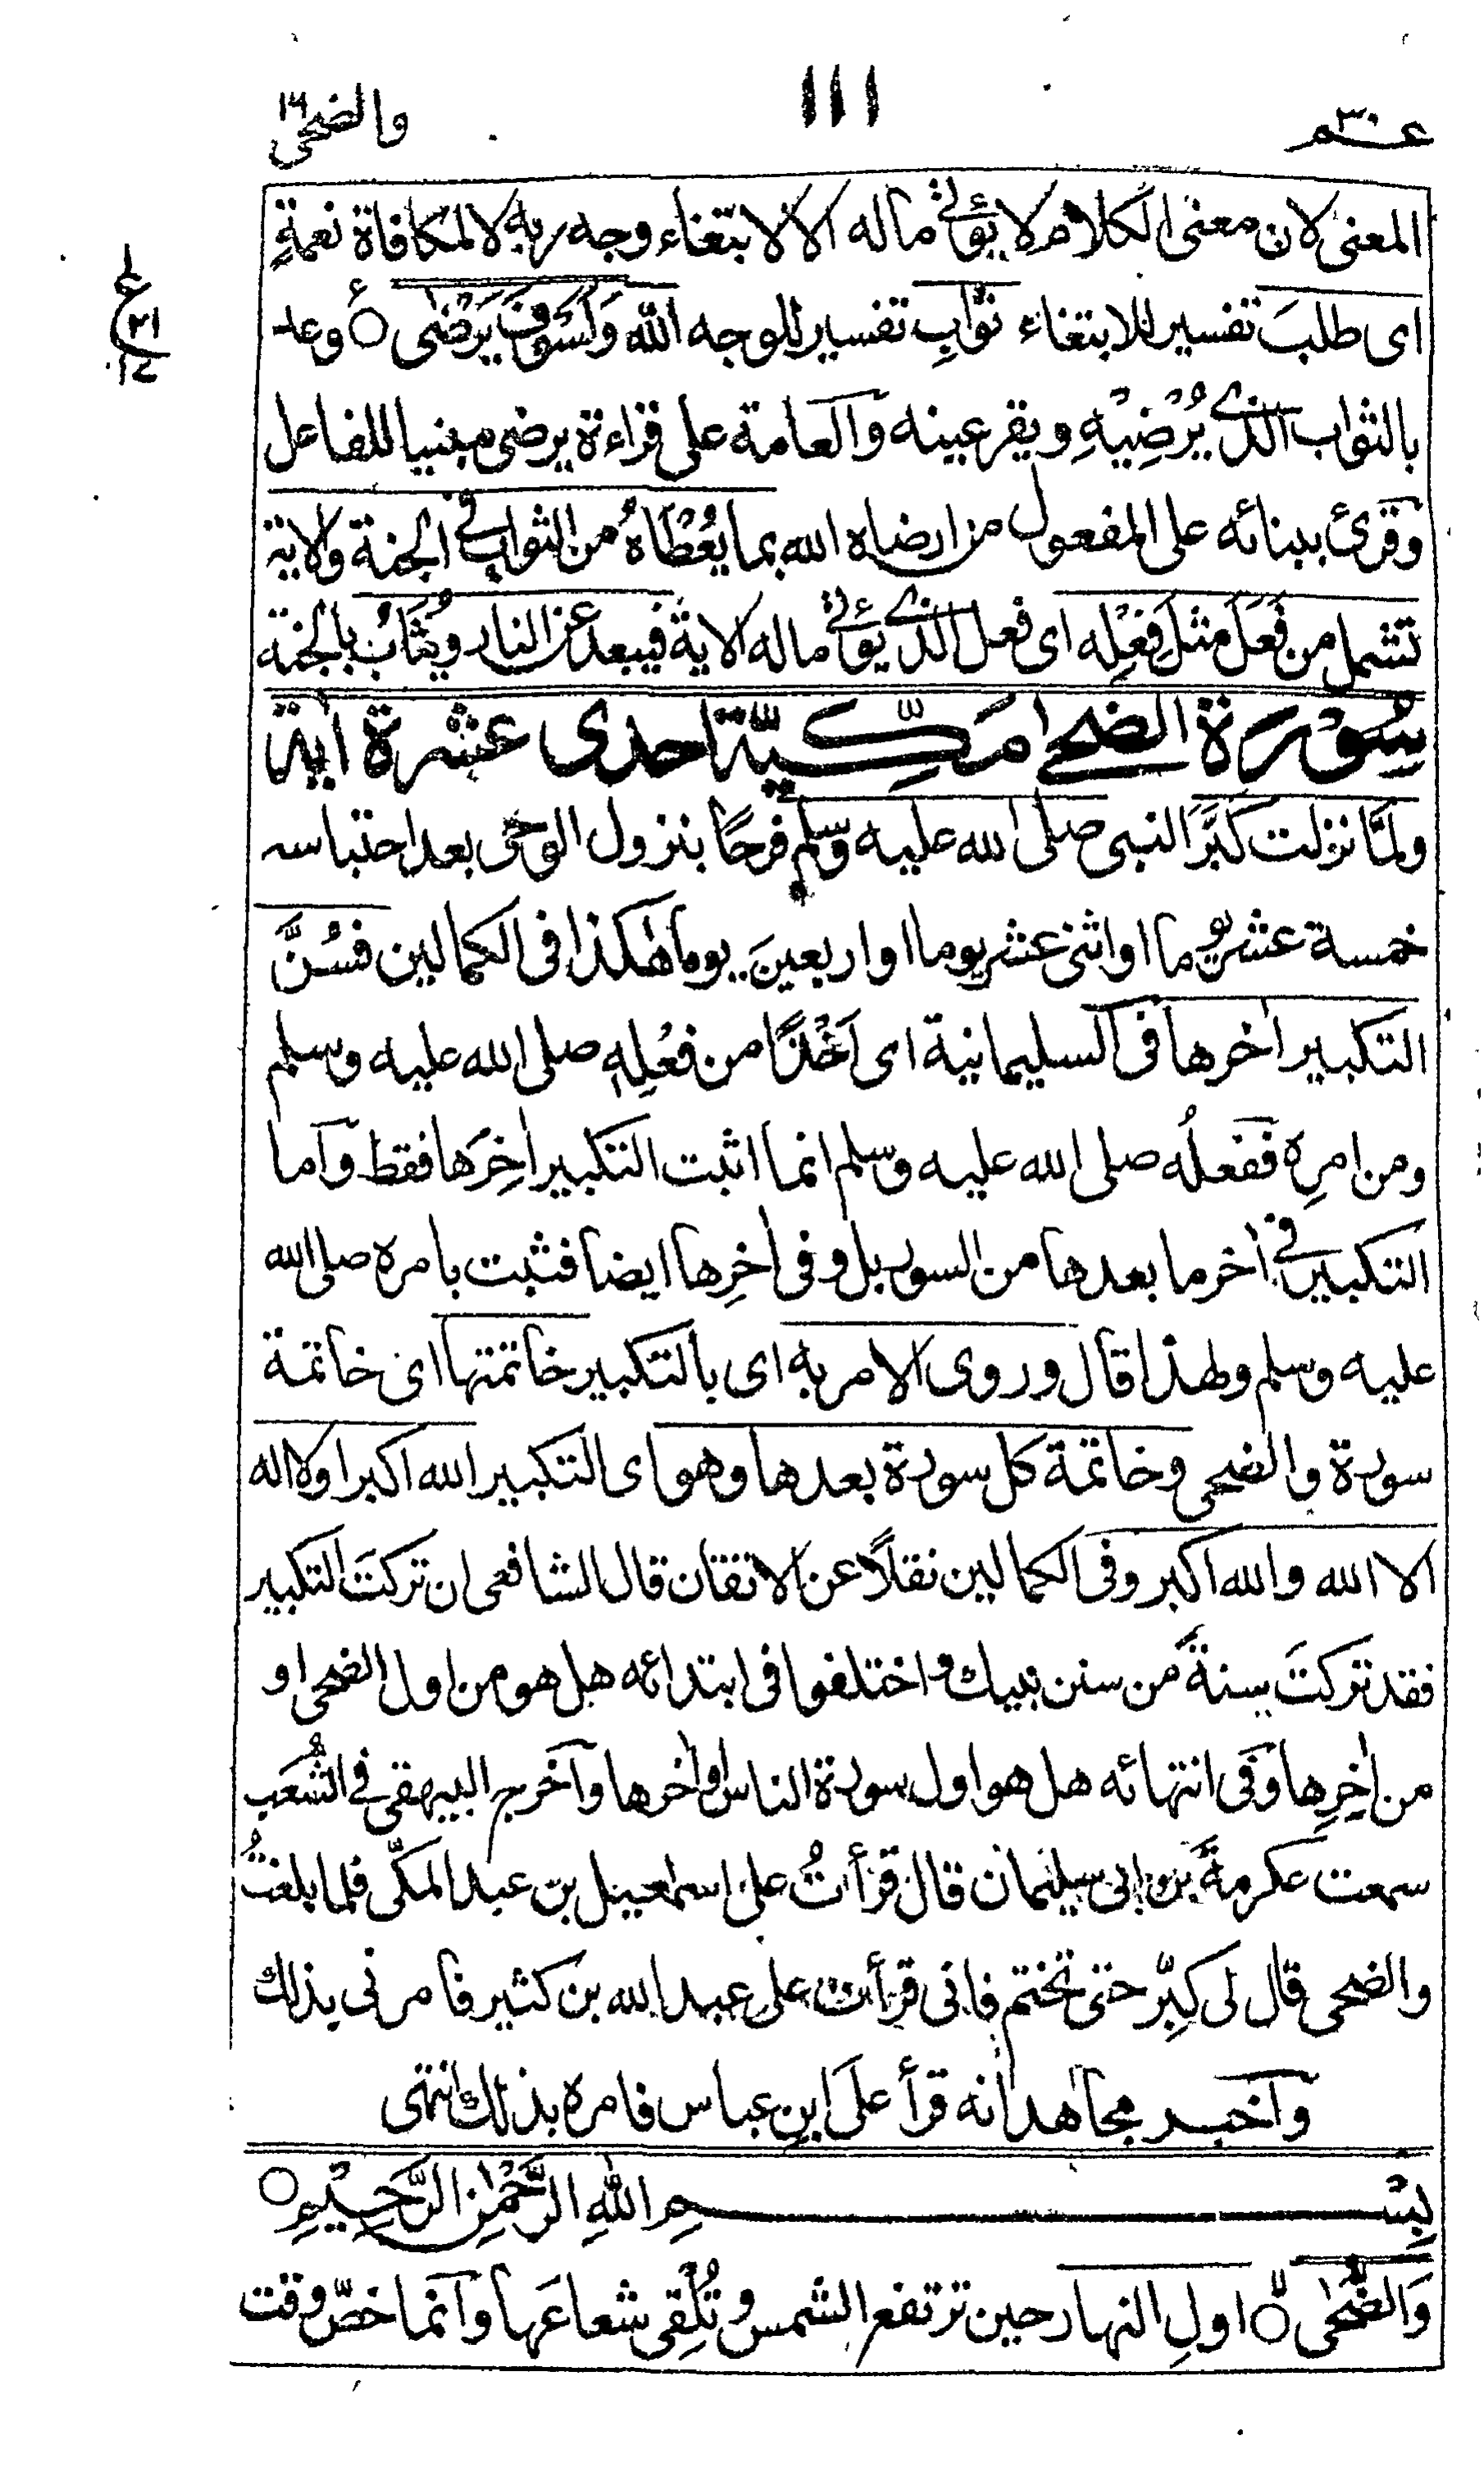 عم ٣٠
١١١
والضحى
المعنى لان معنى الكلام لا يؤتى ماله الا لابتغاء وجه ربه لا لمكافاة نعمةٍ
اى طلبَ تفسير للابتغاء ثوابِ تفسير للوجه اللّٰه وَلَسَوْفَ يَرْضٰى ○ وعد
بالثواب الذى يُرْضِيْهِ ويقر عينه والعامة على قراءة يرضى مبنيا للفاعل
وقرئ ببنائه على المفعول من ارضاه الله بما يُعْطَاهُ من الثواب فى الجنة والاية
تشمل من فَعَلَ مثلَ فِعْلِه اى فعل الذى يؤتى ماله الاية فيبعد عن النار ويُثَابُ بالجنة
سُوْرة الضحى مَكِّيّة احدى عشرة اية
ولمَّا نزلت كَبَّرَ النبى صلى الله عليه وسلم فرحًا بنزول الوحى بعد احتباسه
خمسة عشر يوما او اثنى عشر يوما او اربعينَ يوما هٰكذا فى الكمالين فسُنَّ
التكبير اٰخرها فى السليمانية اى اَخْذًا من فعْلِهٖ صلى الله عليه وسلم
ومن امرِه ففعلُه صلى الله عليه وسلم انما اثبت التكبير اٰخِرَها فقط واما
التكبير فى اٰخر ما بعدها من السور بل وفى اٰخرِها ايضا فثبت بامره صلى الله
عليه وسلم ولهذا قال وروى الامر به اى بالتكبير خاتمتها اى خاتمة
سورة والضحى وخاتمة كل سورة بعدها وهو اى التكبير الله اكبر اولا اله
الا الله والله اكبر وفى الكمالين نقلًا عن الاتقان قال الشافعى ان تركتَ التكبير
فقد تركتَ سنةً من سنن نبيك واختلفوا فى ابتدائه هل هو من اول الضحى او
من اٰخِرِها وفى انتهائه هل هو اول سورة الناس او اٰخرها واخرج البيهقى فى الشُّعَب
سمعت عكرمةَ بن ابى سليمان قال قرأتُ على اسمٰعيل بن عبد المكّى فلما بلغتُ
والضحى قال لى كبِّر حتى تختم فانى قرأت على عبد الله بن كثير فامرنى بذلك
واخبر مجاهد انه قرأ على ابن عباس فامره بذلك انتهى
بِسْمِ اللّٰهِ الرَّحْمٰنِ الرَّحِيْمِ ○
وَالضُّحٰى ○ اولِ النهار حين ترتفع الشمس وتُلْقِى شعاعَها وانما خصّ وقت